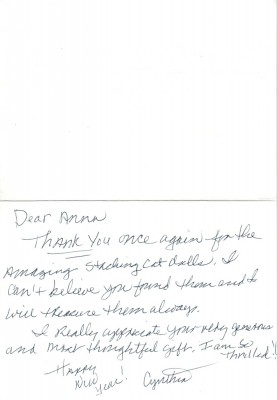 Dear Anna
Thank You once again for the
Amazing Stacking Cat dolls. I
Can't believe you found them and I
will treasure them always.
I Really appreciate your very generous
and most thoughtful gift. I am so
Thrilled!!
Happy
New
Year!
Cynthia